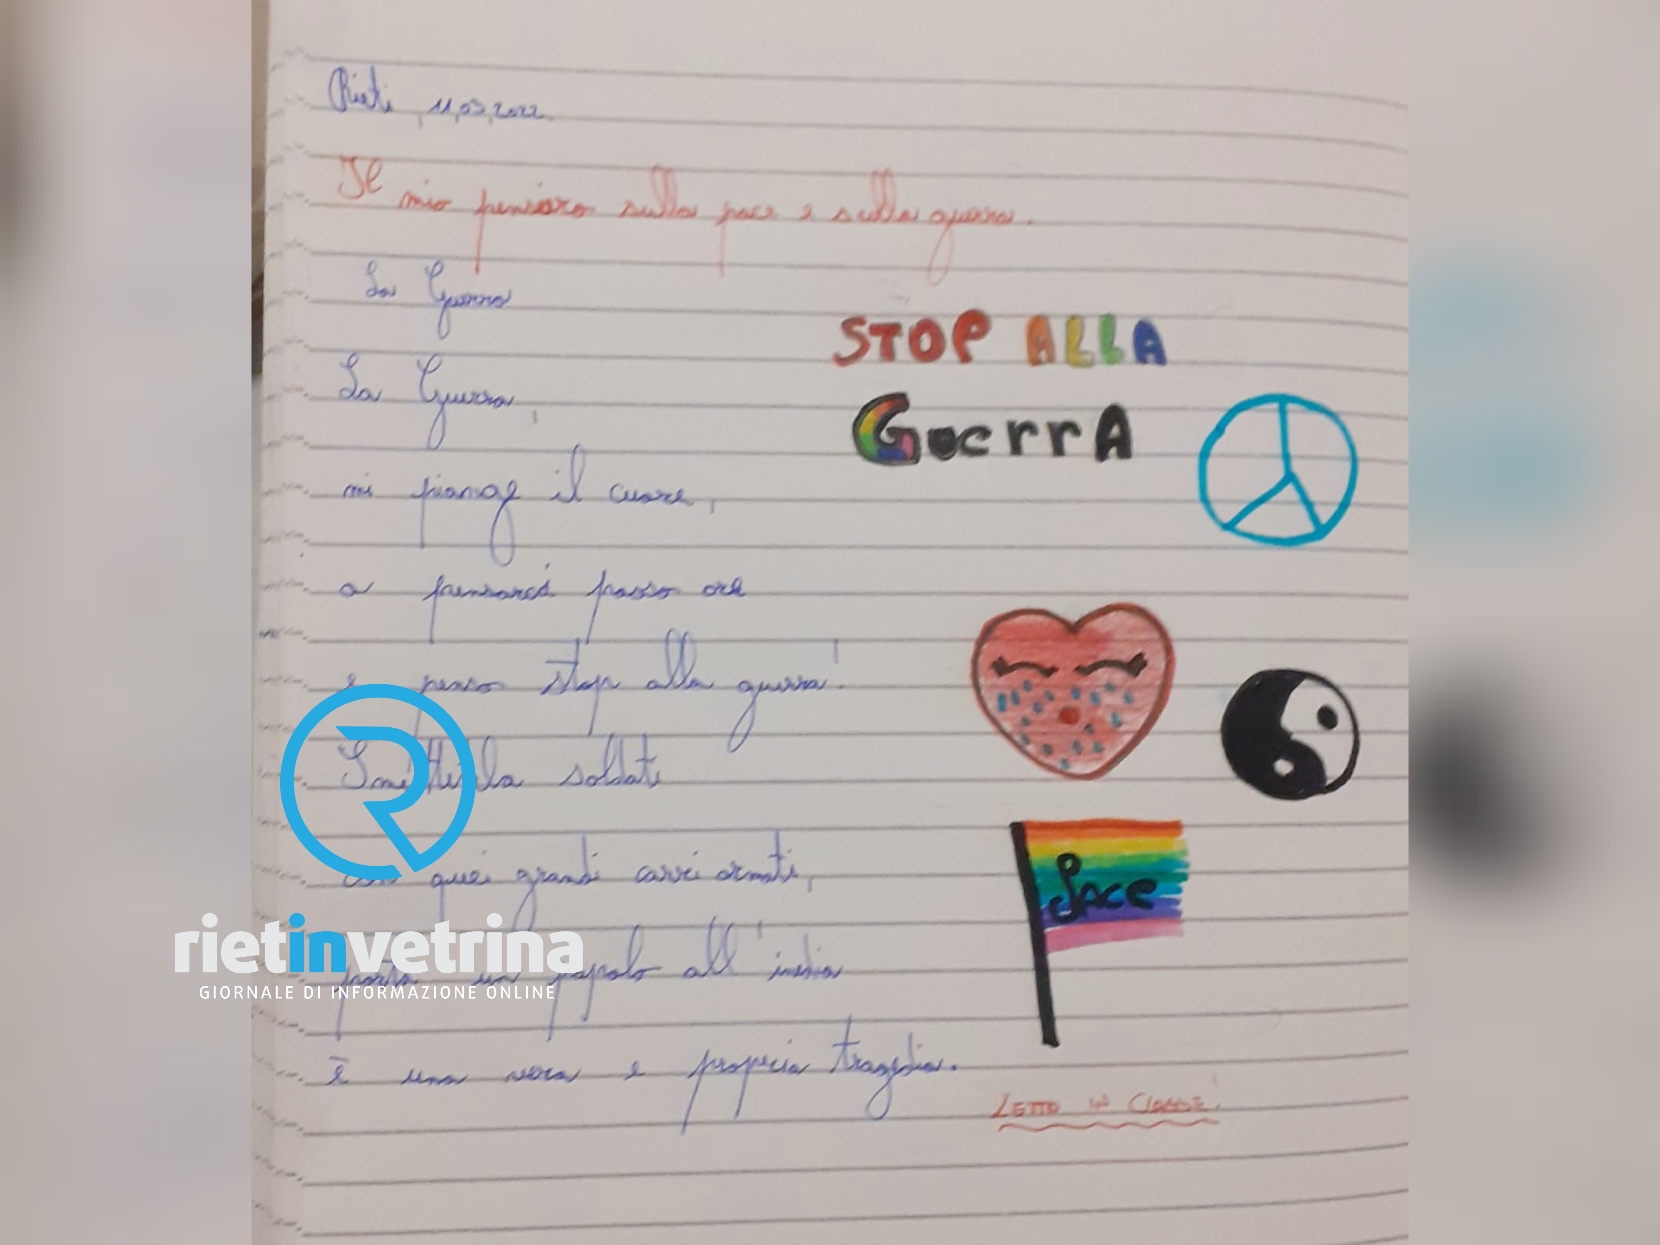 Rieti, 11,03,2022
Il mio pensiero sulla pace e sulla guerra.
La Guerra
La Guerra,
mi piange il cuore,
a pensarci passo ore
e penso stop alla guerra!
Smettila soldati
con quei grandi carri armati,
porta un popolo all'inedia
è una vera e propria tragedia.
STOP ALLA
GuerrA
PAce
LETTO IN CLASSE
rietinvetrina
GIORNALE DI INFORMAZIONE ONLINE